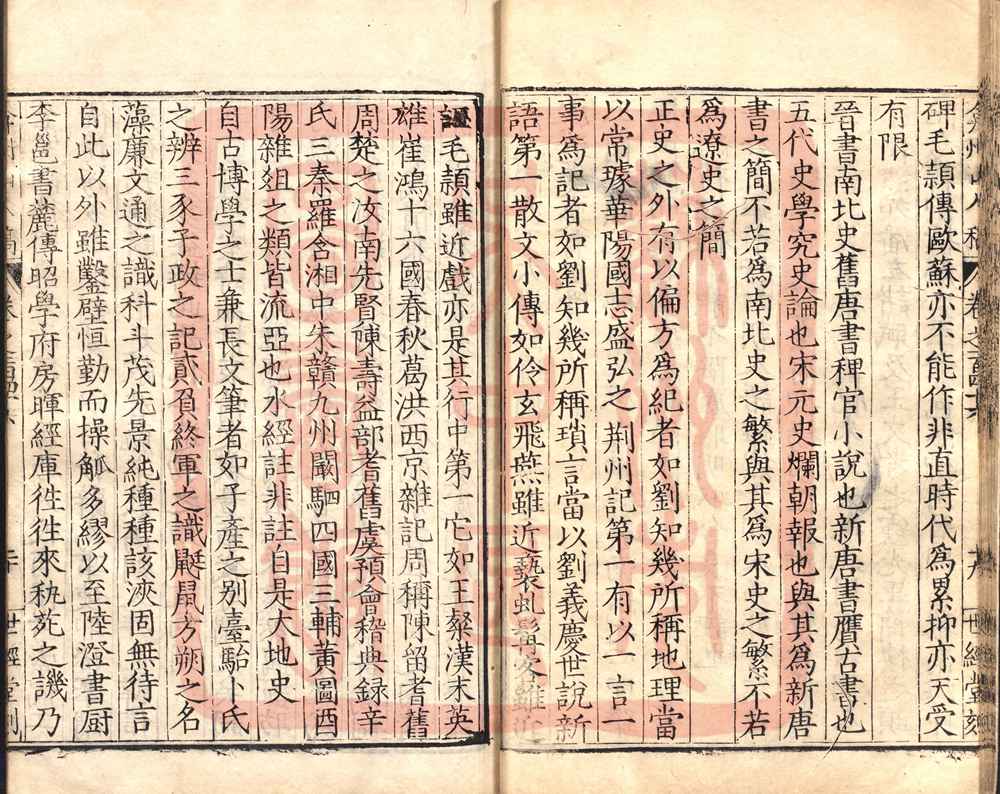 弇州山人稿 卷之一百四十六 世經堂刻
碑毛頴傳歐蘇亦不能作非直時代爲累抑亦天受
有限
晉書南北史舊唐書稗官小說也新唐書贋古書也
五代史學究史論也宋元史爛朝報也與其爲新唐
書之簡不若爲南北史之繁與其爲宋史之繁不若
爲遼史之簡
正史之外有以偏方爲紀者如劉知幾所稱地理當
以常璩華陽國志盛弘之荆州記第一有以一言一
事爲記者如劉知幾所稱瑣言當以劉義慶世說新
語第一散文小傳如伶玄飛燕雖近褻虬髯客雖近
誣毛頴雖近戲亦是其行中第一它如王粲漢末英
雄崔鴻十六國春秋葛洪西京雜記周稱陳留耆舊
周楚之汝南先賢陳壽益部耆舊虞預會稽典録辛
氏三秦羅含湘中朱贛九州闞駰四國三輔黄圖酉
陽雜俎之類皆流亞也水經註非註自是大地史
自古博學之士兼長文筆者如子產之别臺駘卜氏
之辨三豕子政之記貳負終軍之識鼮鼠方朔之名
藻廉文通之識科斗茂先景純種種該浹固無待言
自此以外雖鑿壁恒勤而操觚多繆以至陸澄書厨
李邕書簏傅昭學府房暉經庫徃徃來執苑之譏乃
世經堂刻